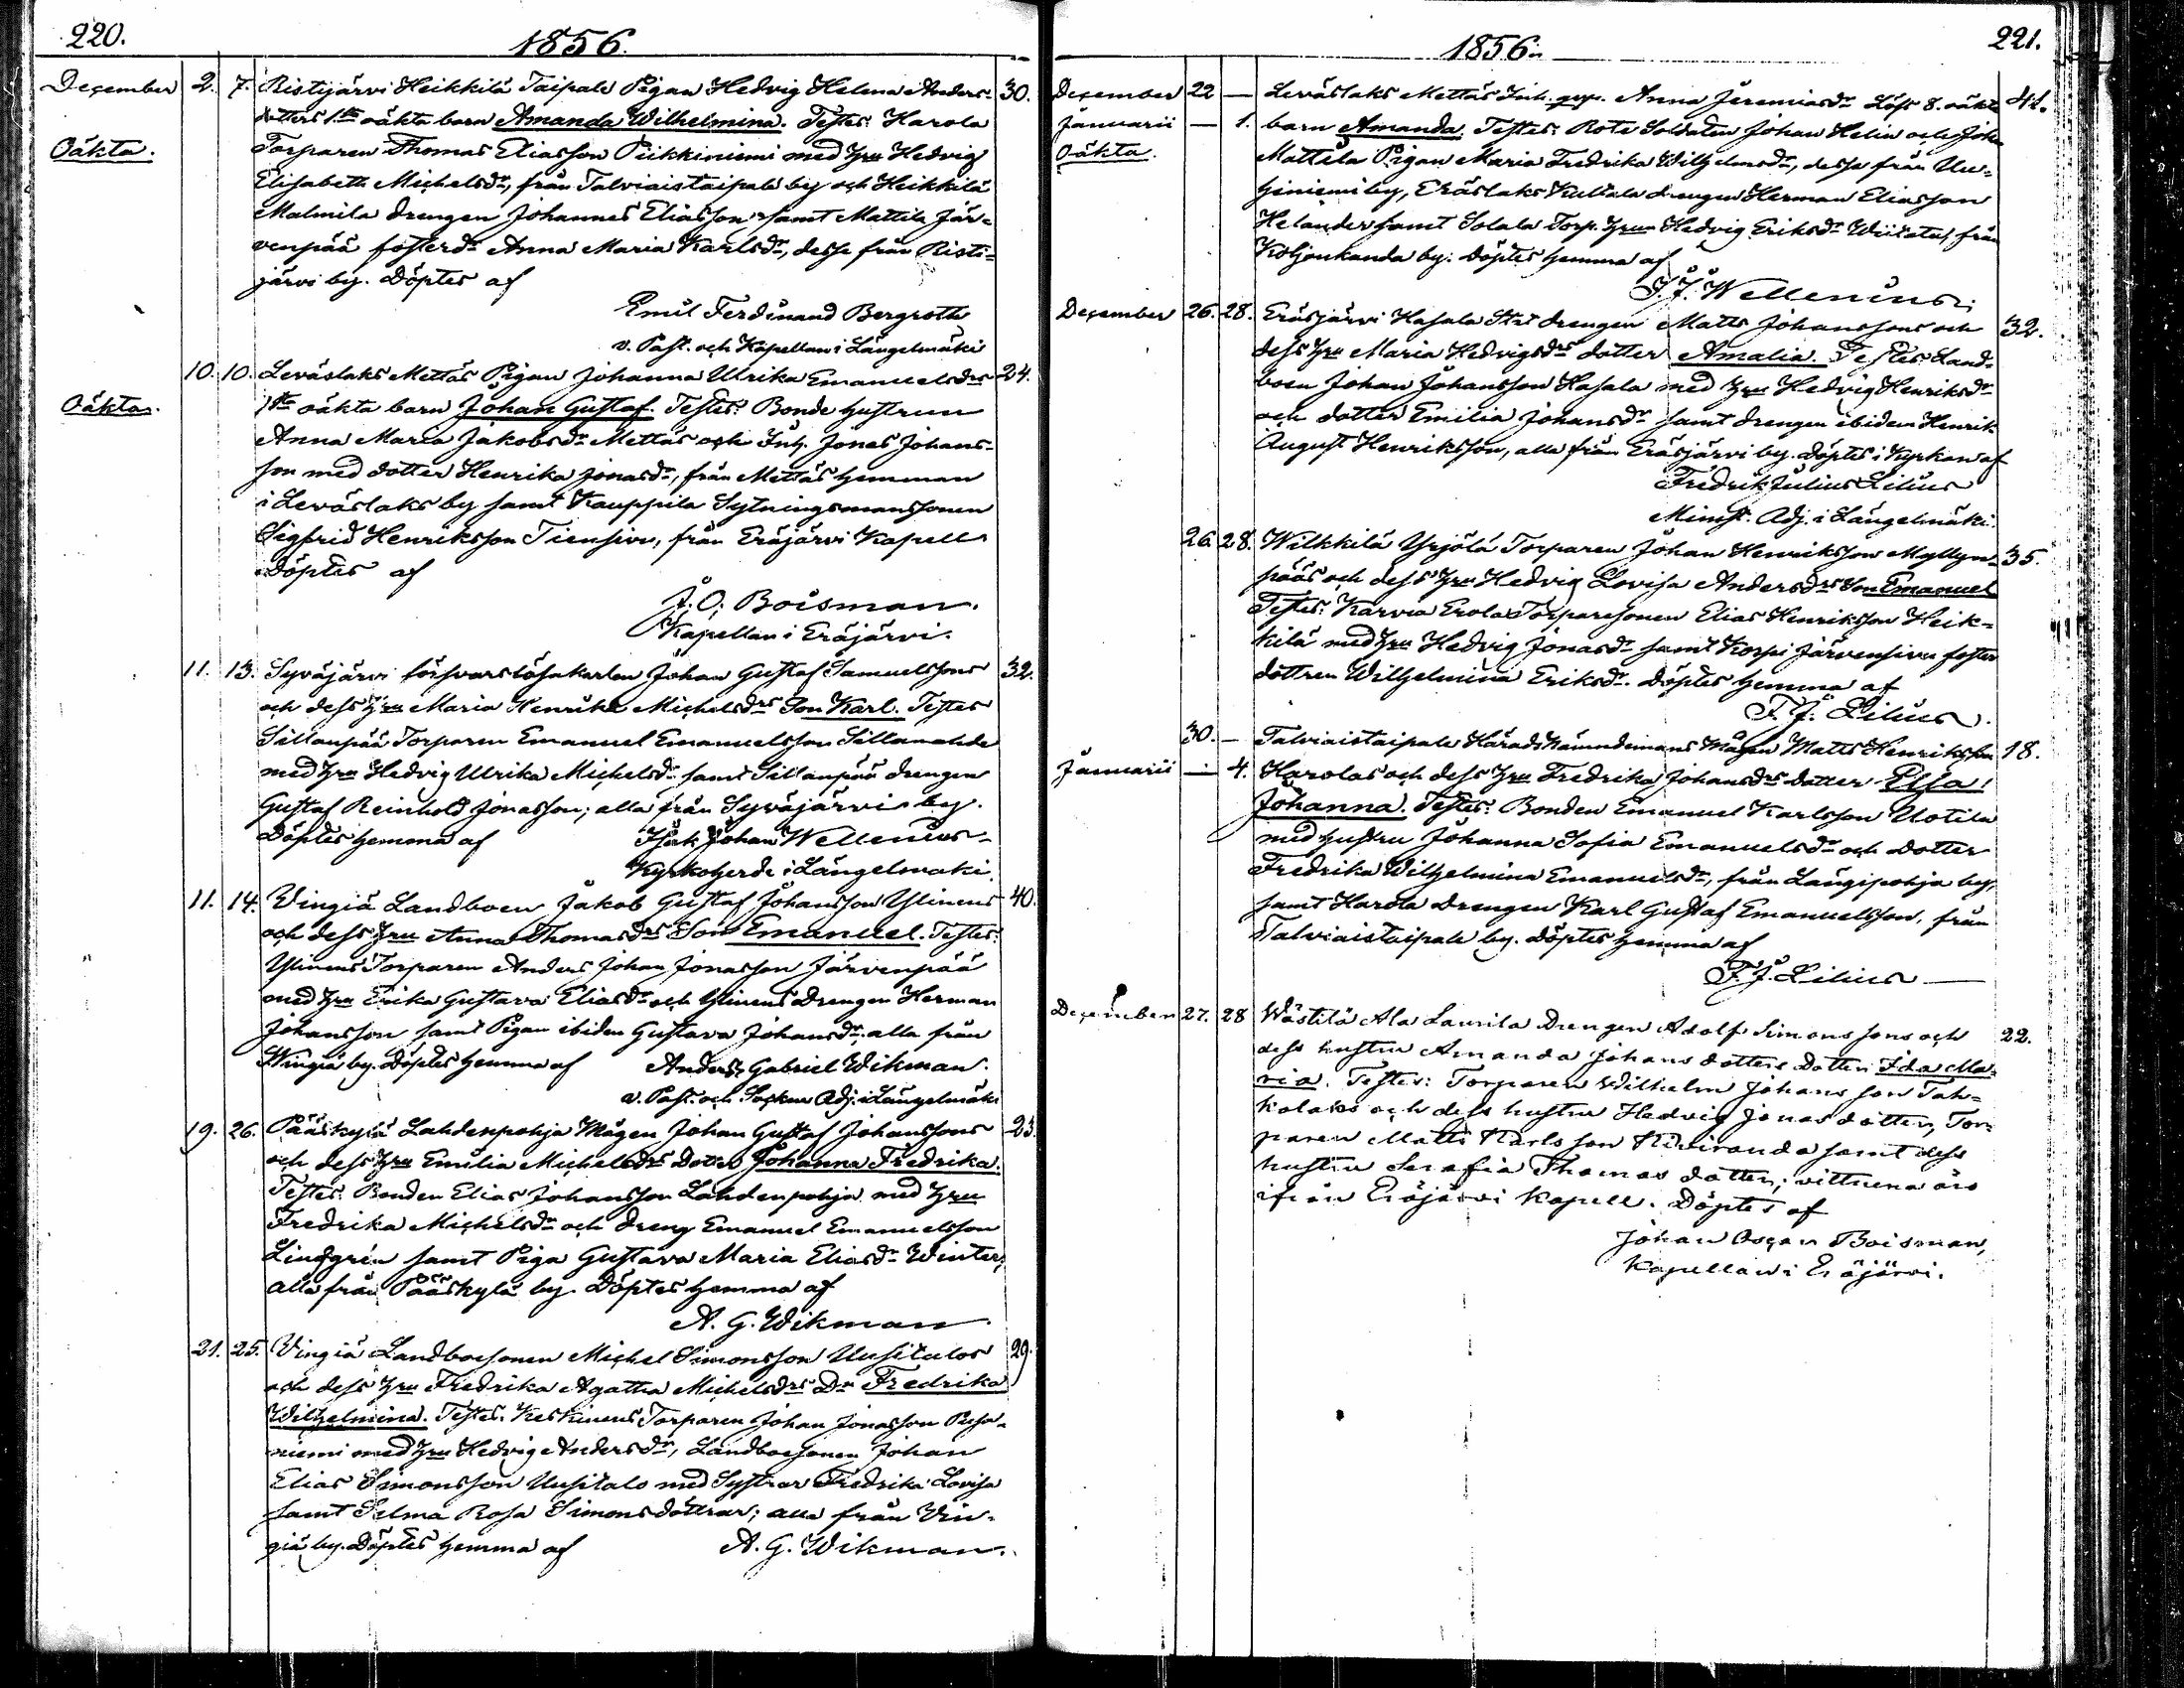 220.
1856.
December 2. 7. Ristijärvi Heikkilä Taipale Pigan Hedvig Helena Anders- 30.
dotters 1sta oäkta barn Amanda Wilhelmina. Testes: Harola
Oäkta. Torparen Thomas Eliasson Piikkiniemi med hru Hedvig
Elisabeth Michelsdr, från Talviaistaipale by och Heikkilä
Malmila drengen Johannes Eliasson samt Mattila Jär-
venpää fosterdr Anna Maria Karlsdr, desse från Risti-
järvi by. Döptes af
Emil Ferdinand Bergroth
v. Past. och Kapellan i Längelmäki
10. 10. Leväslaks Mettäs Pigan Johanna Ulrika Emanuelsdrs 24.
Oäkta. 1sta oäkta barn Johan Gustaf. Testes: Bonde hustrun
Anna Maria Jakobsdr Mettäs och Inh. Jonas Johans-
son med dotter Henrika Jonasdr, från Mettäs hemman
i Leväslaks by samt Kauppila Sytningsmanssonen
Sigfrid Henriksson Tiensivu, från Eräjärvi Kapell
Döptes af
J. O. Boisman.
Kapellan i Eräjärvi.
11. 13. Syväjärvi försvarslösakarlen Johan Gustaf Samuelssons 32.
och dess hru Maria Henrika Michelsdrs Son Karl. Testes
Sillanpää Torparen Emanuel Emanuelsson Sillanahde
med hru Hedvig Ulrika Michelsdr samt Sillanpää drengen
Gustaf Reinhold Jonasson; alla från Syväjärvi by.
Döptes hemma af Isak Johan Wellenius
Kyrkoherde i Längelmäki.
11. 14. Vingiä Landboen Jakob Gustaf Johansson Ylinens 40.
och dess hru Anna Thomasdrs Son Emanuel. Testes:
Ylinens Torparen Anders Johan Jonasson Järvenpää
med hru Erika Gustava Eliasdr och Ylinens Drengen Herman
Johansson samt Pigan ibidem Gustava Johansdr, alla från
Wingiä by. Döptes hemma af Anders Gabriel Wikman.
v. Past. och Sockne Adj. i Längelmäki
19. 26. Pääskylä Lahdenpohja Mågen Johan Gustaf Johanssons 23.
och dess hru Emilia Michelsdrs Dotter Johanna Fredrika.
Testes: Bonden Elias Johansson Lahdenpohja med hru
Fredrika Michelsdr och dreng Emanuel Emanuelsson
Lindgrén samt Piga Gustava Maria Eliasdr Winter,
alla från Pääskylä by. Döptes hemma af
A. G. Wikman
21. 25. Vingiä Landbosonen Michel Simonsson Uusitalos 29.
och dess hru Fredrika Agatha Michelsdrs Dr Fredrika
Wilhelmina. Testes. Keskinens Torparen Johan Jonasson
niemi med hru Hedvig Andersdr, Landbosonen Johan
Elias Simonsson Uusitalo med Systrar Fredrika Lovisa
samt Selma Rosa Simonsdöttrar; alla från Vin-
giä by. Döptes hemma af A. G. Wikman.
1856.
221.
December 22 — Leväslaks Mettäs Inh. Anna Jeremiasdr Löfs 8. oäkta 41.
Januarii — 1. barn Amanda. Testes: Rote Soldaten Johan Helin och
Oäkta. Mattila Pigan Maria Fredrika Wilhelmsdr, desse från Uu-
hiniemi by, Eräslaks Kultala drengen Herman Eliasson
Helander samt Solala Torp. hrun Hedvig Eriksdr Wiitala från
Koljonkanda by. Döptes hemma af
I. J. Wellenius.
December 26. 28. Eräsjärvi Hasala drengen Matts Johanssons och 32.
dess hru Maria Hedvigsdrs dotter Amalia. Testes: Land-
boen Johan Johansson Hasala med hru Hedvig Henriksdr
och dotter Emilia Johansdr samt drengen ibidem Henrik
August Henriksson, alla från Eräsjärvi by. Döptes i Kyrkan af
Fredrik Julius Lilius
Minist. Adj. i Längelmäki.
26. 28. Wilkkilä Yrjölä Torparen Johan Henriksson Myllyn- 35.
pääs och dess hru Hedvig Lovisa Andersdrs Son Emanuel
Testes: Karvia Erola Torparesonen Elias Henriksson Heik-
kilä med hru Hedvig Jonasdr samt Korpi Järvensivu foster
dottren Wilhelmina Eriksdr. Döptes hemma af
F. J. Lilius.
30. — Talviaistaipale Härads Nämndemans Mågen Matts Henriksson 18.
Januarii — 4. Harolas och dess hru Fredrika Johansdrs dotter Elsa
Johanna. Testes: Bonden Emanuel Karlsson Uotila
med hustru Johanna Sofia Emanuelsdr och dotter
Fredrika Wilhelmina Emanuelsdr, från Längipohja by,
samt Harola Drengen Karl Gustaf Emanuelsson, från
Talviaistaipale by. Döptes hemma af
F. J. Lilius
December 27. 28 Wästilä Ala Laurila Drengen Adolf Simonssons och 22.
dess hustru Amanda Johansdotters Dotter Ida Ma-
ria. Testes: Torparen Wilhelm Johansson Tah-
kolaks och dess hustru Hedvig Jonasdotter, Tor-
paren Matts Karlsson Kiviranda samt dess
hustru Serafia Thomasdotter; vittnena äro
ifrån Eräjärvi Kapell. Döptes af
Johan Oscar Boisman,
Kapellan i Eräjärvi.